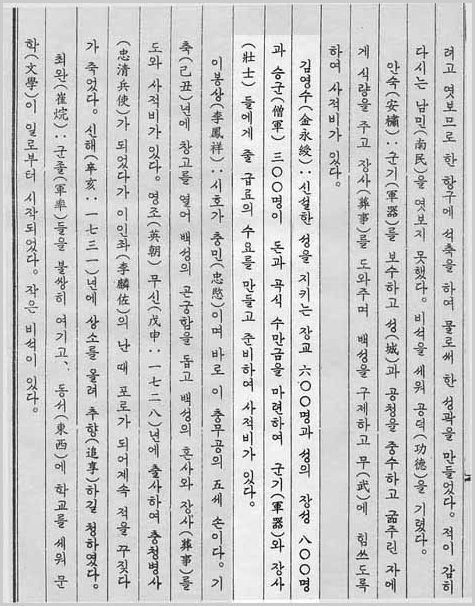 려고 엿보므로 한 항구에 석축을 하여 물로써 한 성곽을 만들었다. 적이 감히
다시는 남민(南民)을 엿보지 못했다. 비석을 세워 공덕(功德)을 기렸다.
안숙(安橚)::군기(軍器)를 보수하고 성(城)과 공청을 중수하고 굶주린 자에
게 식량을 주고 장사(葬事)를 도와주며 백성을 구제하고 무(武)에 힘쓰도록
하여 사적비가 있다.
김영수(金永綬)::신설한 성을 지키는 장교 六○○명과 성의 장성 八○○명
과 승군(僧軍) 三○○명이 돈과 곡식 수만금을 마련하여 군기(軍器)와 장사
(壯士) 들에게 줄 급료의 수요를 만들고 준비하여 사적비가 있다.
이봉상(李鳳祥)::시호가 충민(忠愍)이며 바로 이 충무공의 五세 손이다. 기
축(己丑)년에 창고를 열어 백성의 곤궁함을 돕고 백성의 혼사와 장사(葬事)를
도와 사적비가 있다. 영조(英朝) 무신(戊申::一七二八)년에 출사하여 충청병사
(忠清兵使)가 되었다가 이인좌(李麟佐)의 난 때 포로가 되어계속 적을 꾸짖다
가 죽었다. 신해(辛亥::一七三一)년에 상소를 올려 추향(追享)하길 청하였다.
최완(崔烷)::군졸(軍率)들을 불쌍히 여기고、동서(東西)에 학교를 세워 문
학(文學)이 일로부터 시작되었다。작은 비석이 있다.